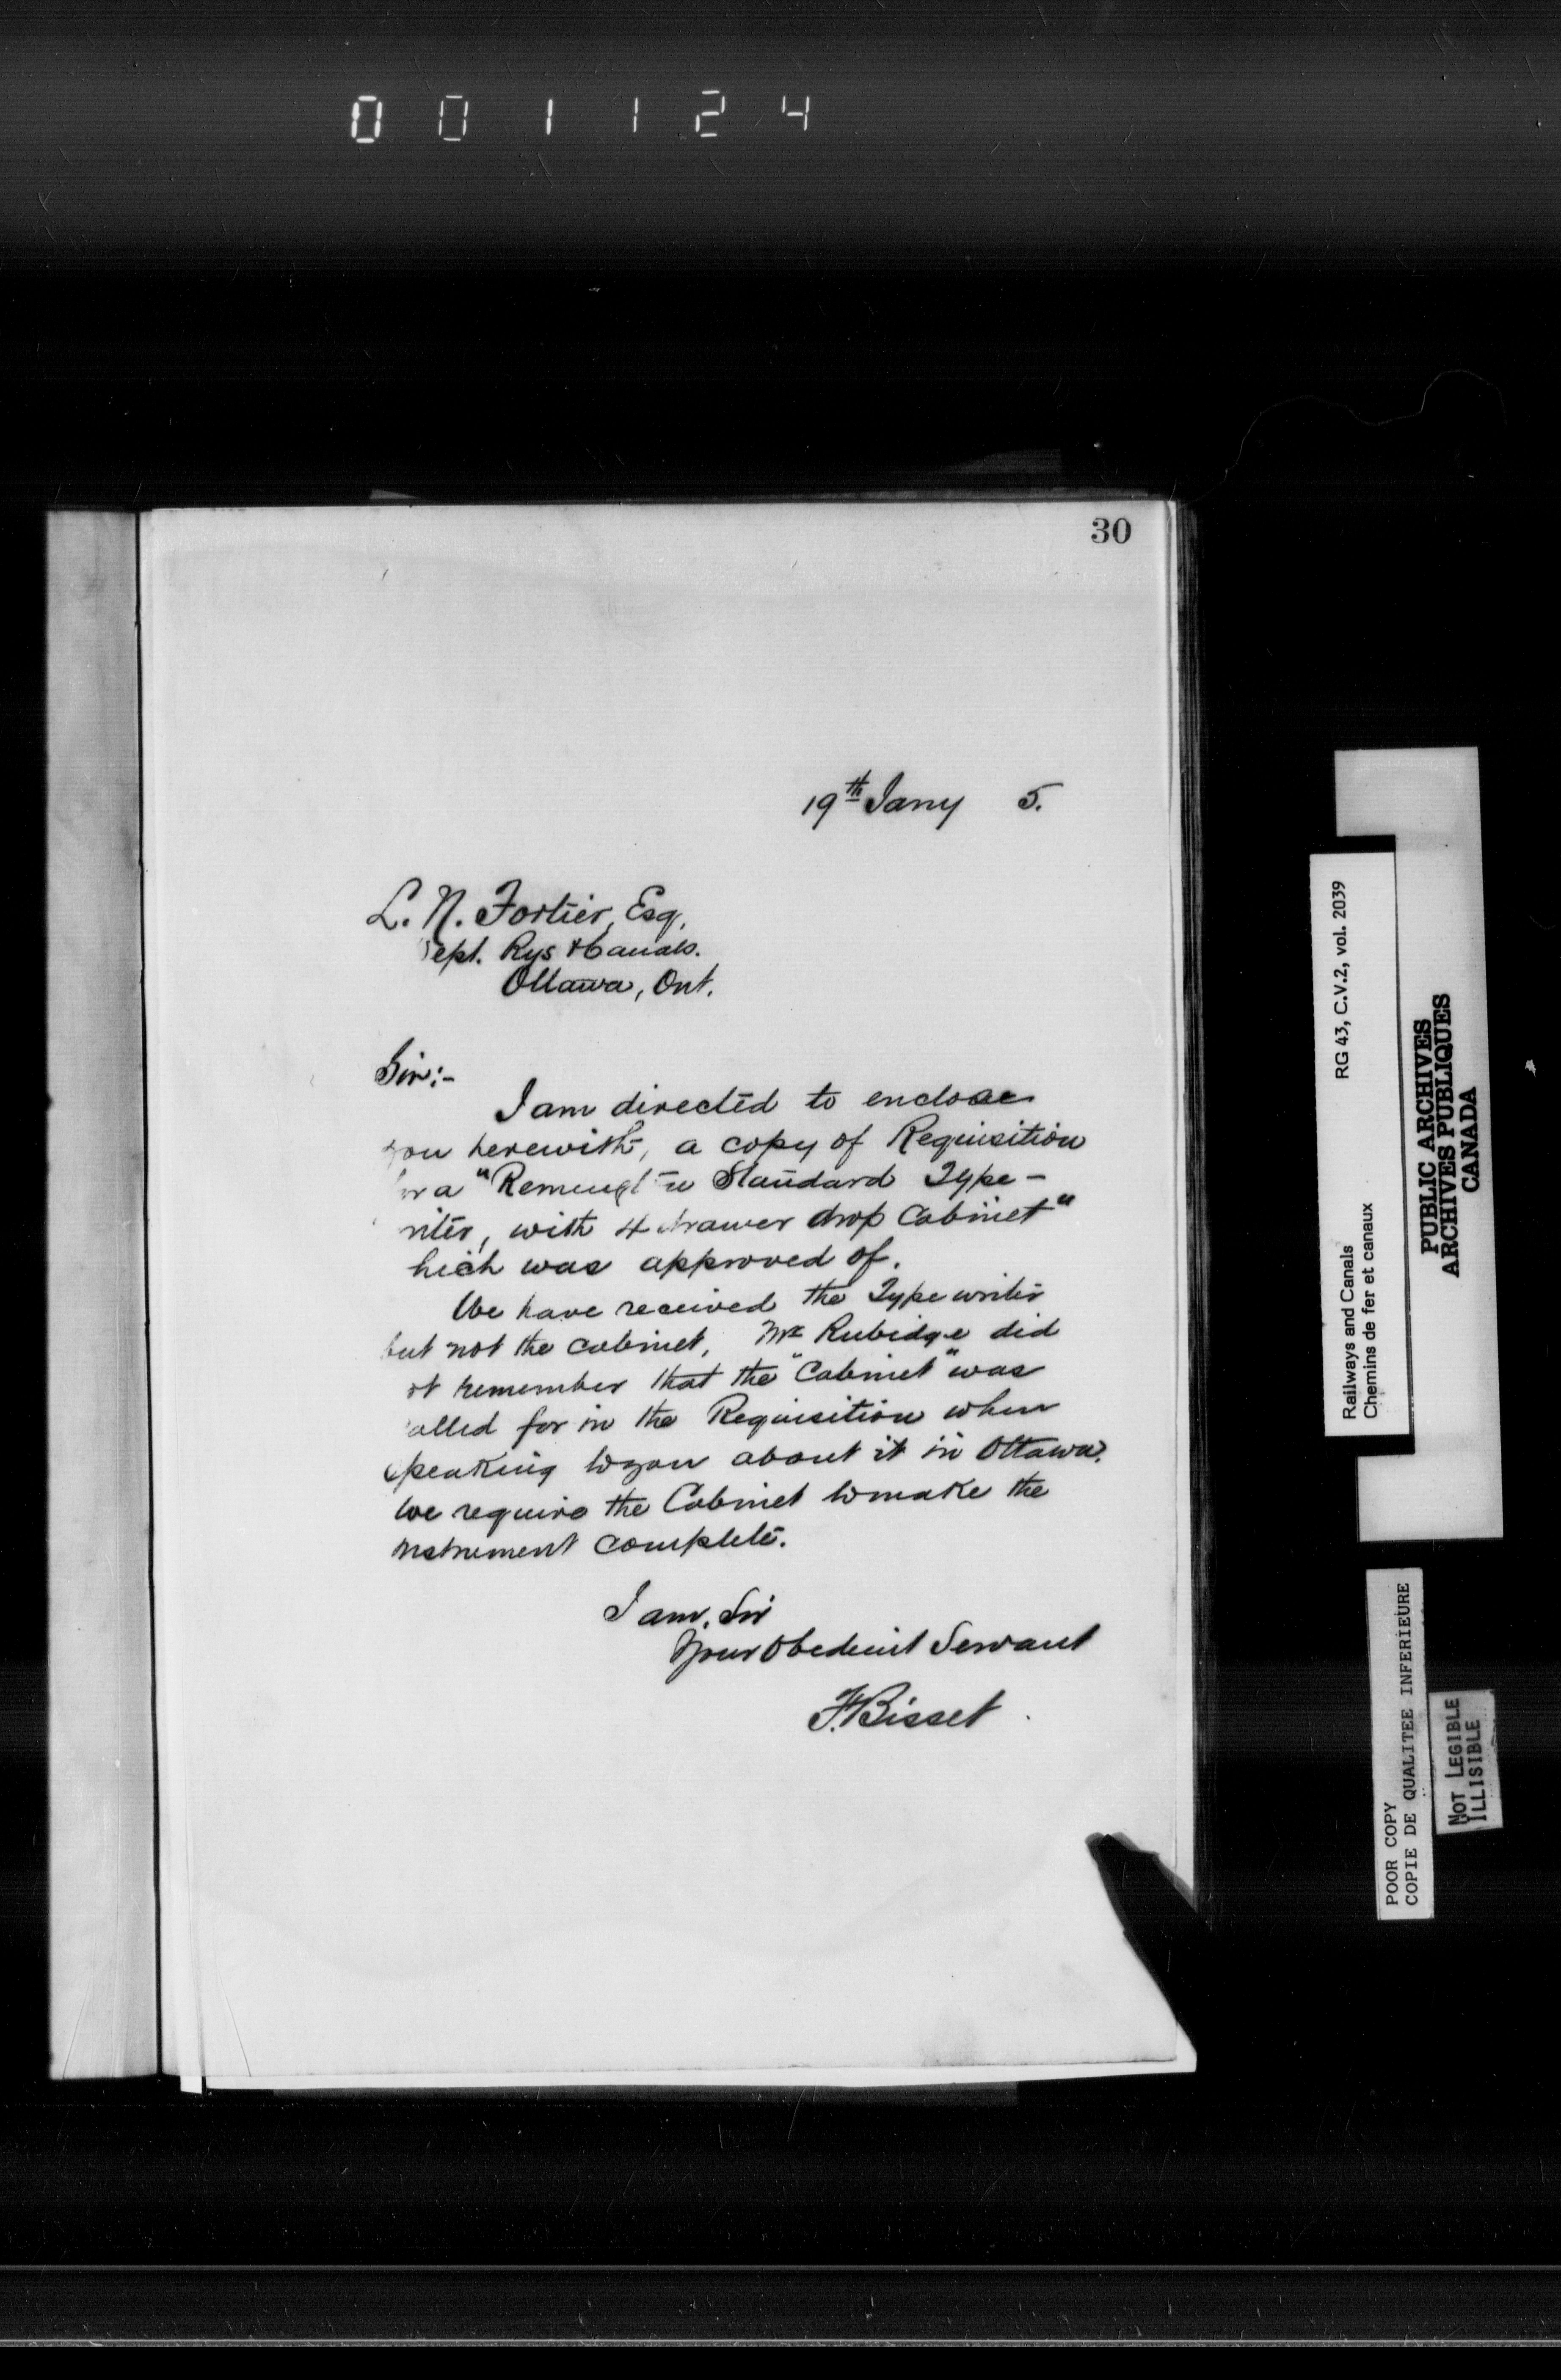 0 0 1 1 2 4
30
19th Jany 5.
L. N. Fortier, Esq,
ept. Rys & Canals.
Ottawa, Ont.
Sir:-
I am directed to enclose
you herewith, a copy of Requisition
or a "Remingt n Standard Type-
riter, with 4 drawer drop Cabinet"
hich was approved of.
We have received the Typewriter
but not the cabinet, Mr Rubidge did
ot remember that the "Cabinet" was
alled for in the Requisition when
speaking to you about it in Ottawa.
We require the Cabinet to make the
nstrument complete.
I am, Sir
Your Obedient Servant
F. Bisset
RG 43, C.V.2, vol. 2039
Railways and Canals
Chemins de fer et canaux
PUBLIC ARCHIVES
ARCHIVES PUBLIQUES
CANADA
POOR COPY
COPIE DE QUALITEE INFERIEURE
NOT LEGIBLE
ILLISIBLE